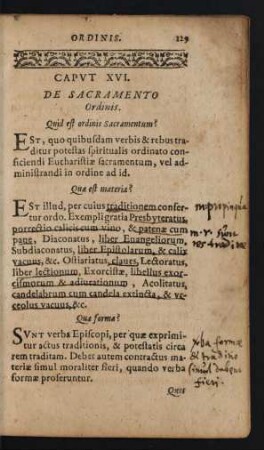 ORDINIS. 129
CAPVT XVI.
DE SACRAMENTO
Ordinis.
Quid est ordinis Sacramentum?
EST, quo quibusdam verbis & rebus traditur
potestas spiritualis ordinato conficiendi
Eucharistiæ sacramentum, vel administrandi
in ordine ad id.
Quæ est materia?
EST illud, per cuius traditionem confertur
ordo. Exempli gratia Presbyteratus,
porrectio calicis cum vino, & patenæ cum
pane, Diaconatus, liber Euangeliorum,
Subdiaconatus, liber Epistolarum, & calix
vacuus, &c. Ostiariatus, claues, Lectoratus,
liber lectionum, Exorcistæ, libellus exorcismorum
& adiurationum, Acolitatus,
candelabrum cum candela extincta, & vrceolus
vacuus, &c.
Quæ forma?
SVNT verba Episcopi, per quæ exprimitur
actus traditionis, & potestatis circa
rem traditam. Debet autem contractus materiæ
simul moraliter fieri, quando verba
formæ proferuntur.
Quis
formæ
et traditio
simul
fieri.